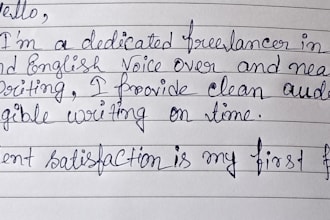 ello,
I'm a dedicated freelancer in
nd English Voice over and nea
writing, I provide clean aud
gible writing on time.
ent satisfaction is my first f